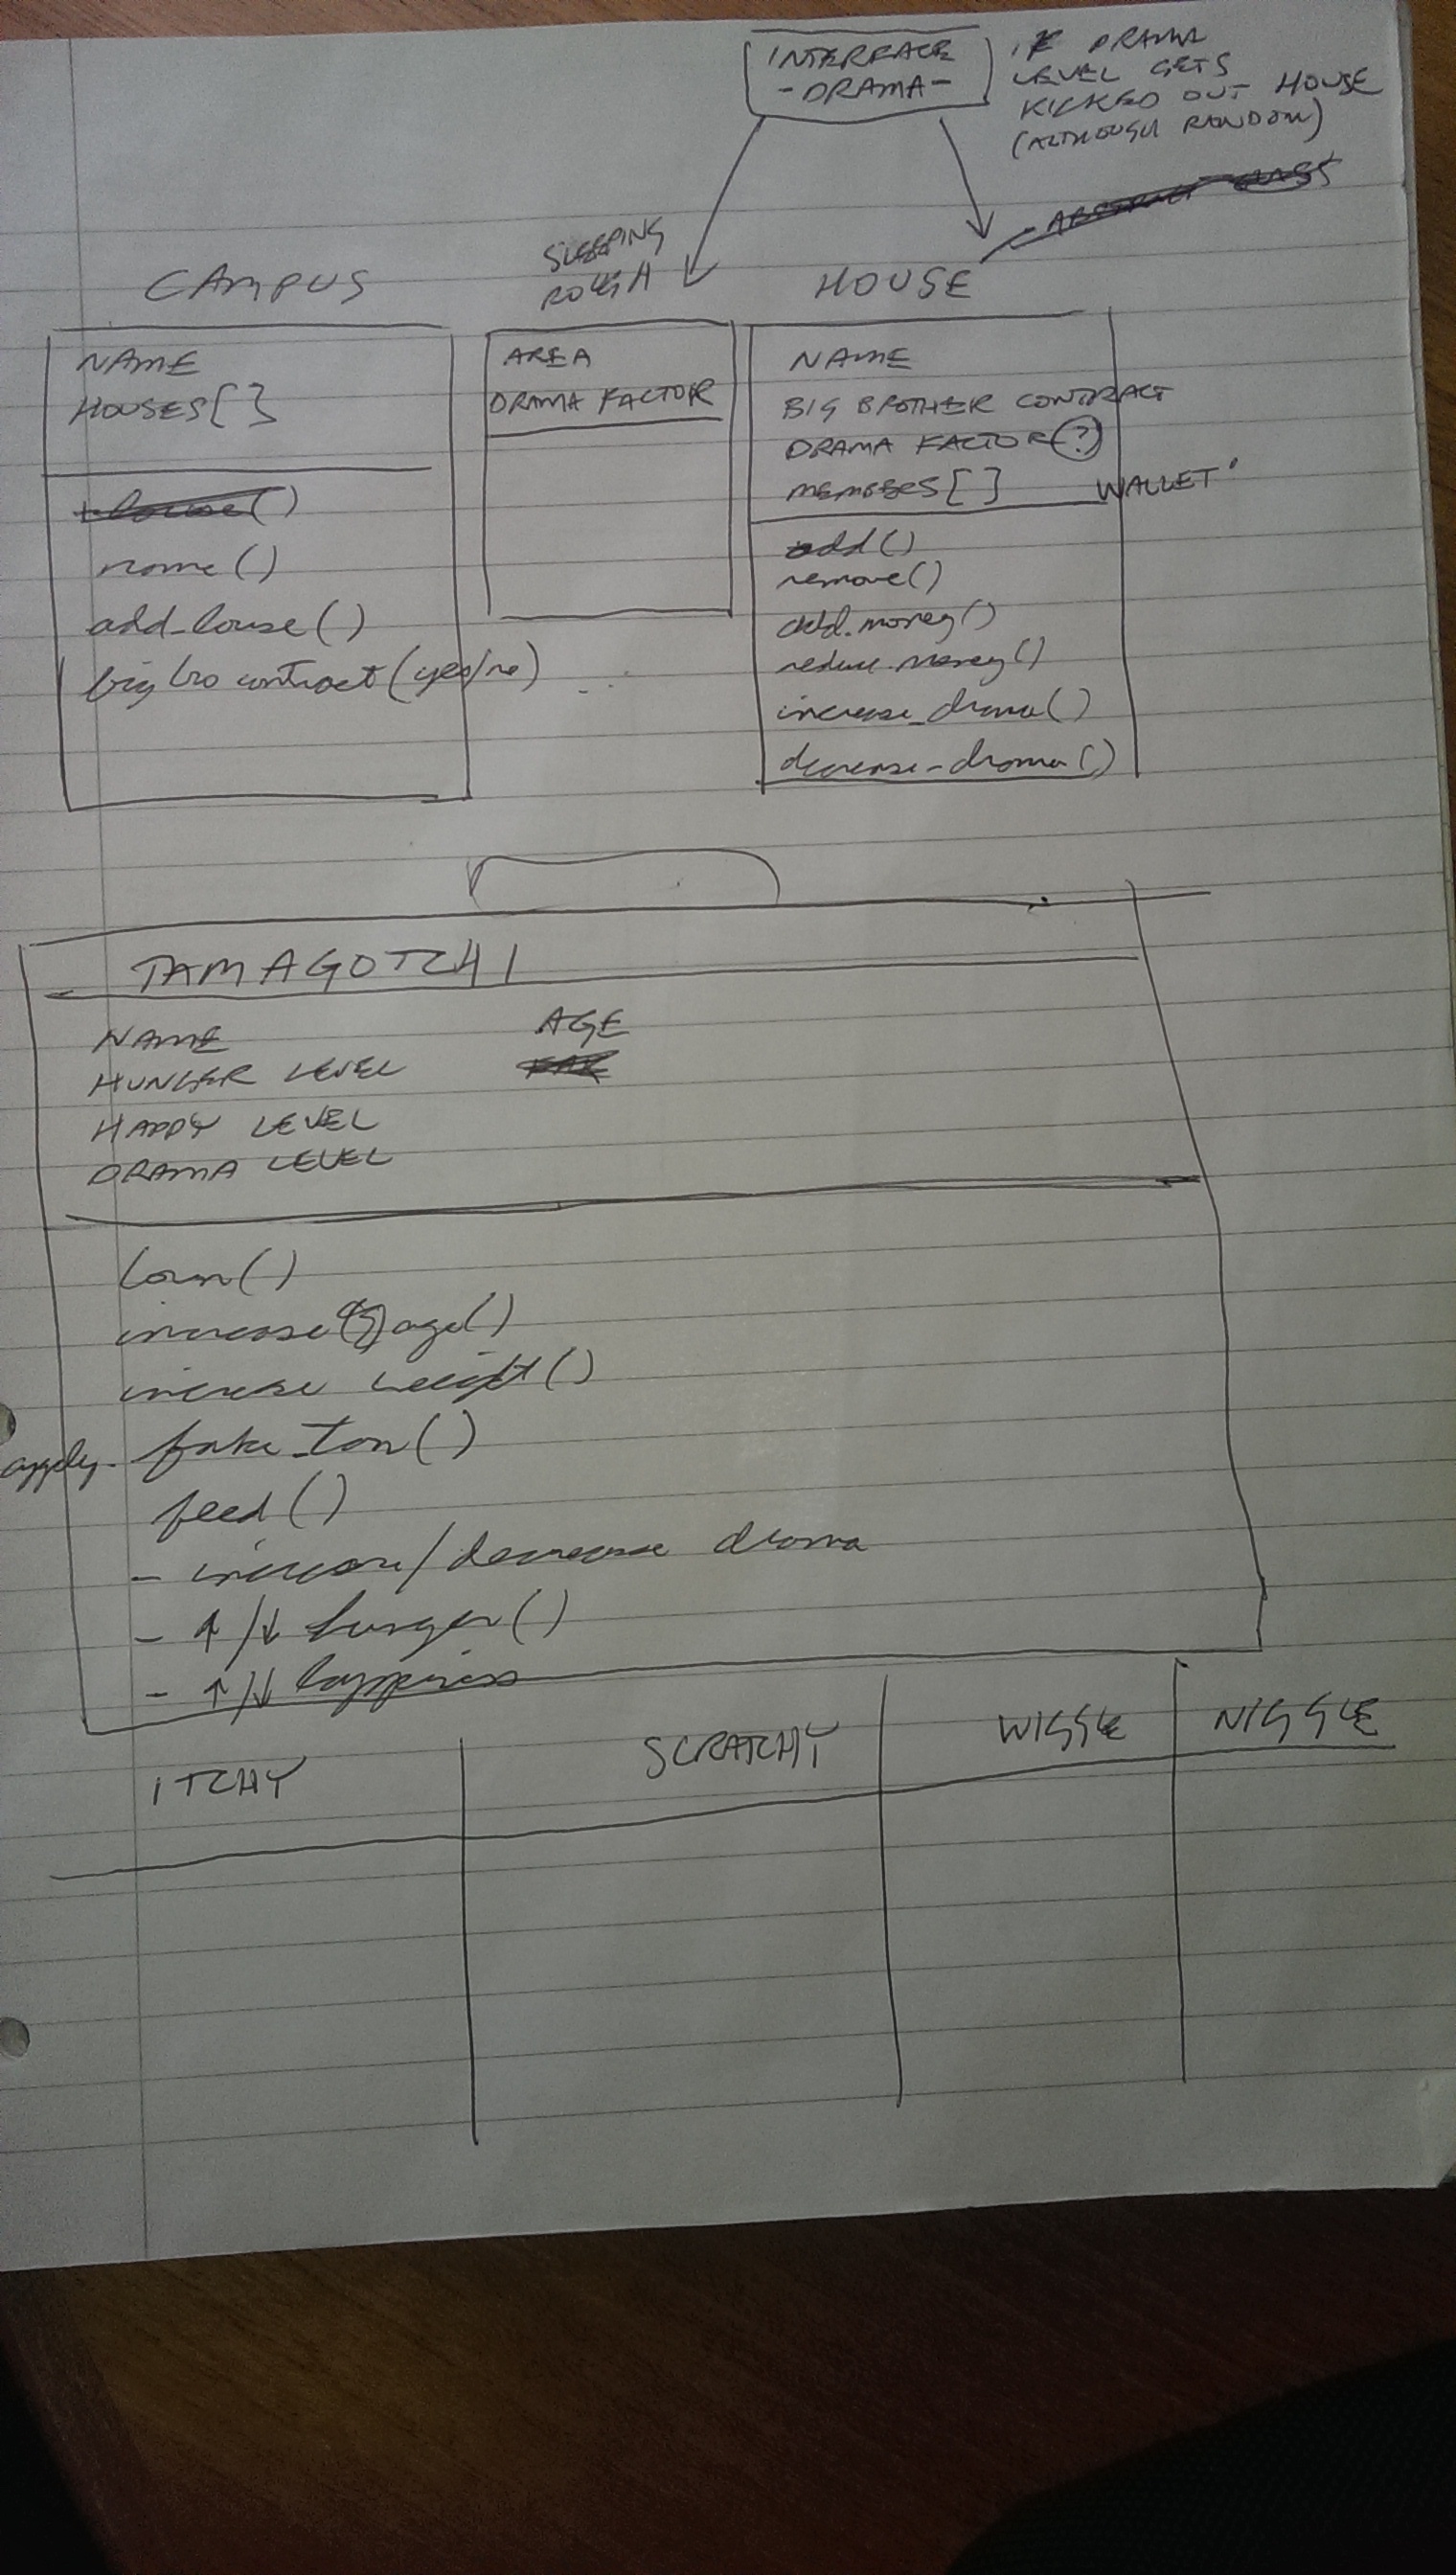 INTERFACE
- DRAMA -
IF DRAMA
LEVEL GETS
KICKED OUT HOUSE
(ALTHOUGH RANDOM)
ABSTRACT CLASS
CAMPUS
SLEEPING
ROUGH
HOUSE
NAME
HOUSES[]
house()
name()
add_house()
big bro contract (yes/no)
AREA
DRAMA FACTOR
NAME
BIG BROTHER CONTRACT
DRAMA FACTOR (?)
MEMBERS[] WALLET
add()
remove()
add.money()
reduce.money()
increase_drama()
decrease_drama()
TAMAGOTCHI
NAME AGE
HUNGER LEVEL
HAPPY LEVEL
DRAMA LEVEL
born()
increase age()
increase weight()
apply - fake_tan()
feed()
- increase/decrease drama
- ↑/↓ hunger()
- ↑/↓ happiness
ITCHY SCRATCHY WIGGLE NIGGLE